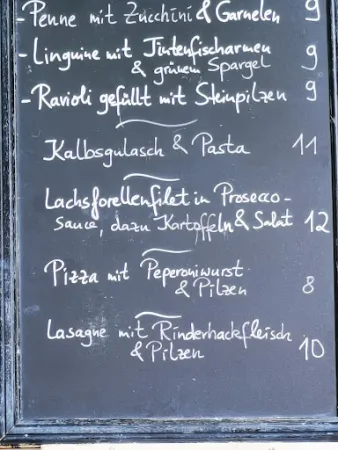 - Penne mit Zucchini & Garnelen 9
- Linguine mit Tintenfischarmen 9
& grünem Spargel
- Ravioli gefüllt mit Steinpilzen 9
Kalbsgulasch & Pasta 11
Lachsforellenfilet in Prosecco-
Sauce, dazu Kartoffeln & Salat 12
Pizza mit Peperoniwurst
& Pilzen 8
Lasagne mit Rinderhackfleisch
& Pilzen 10